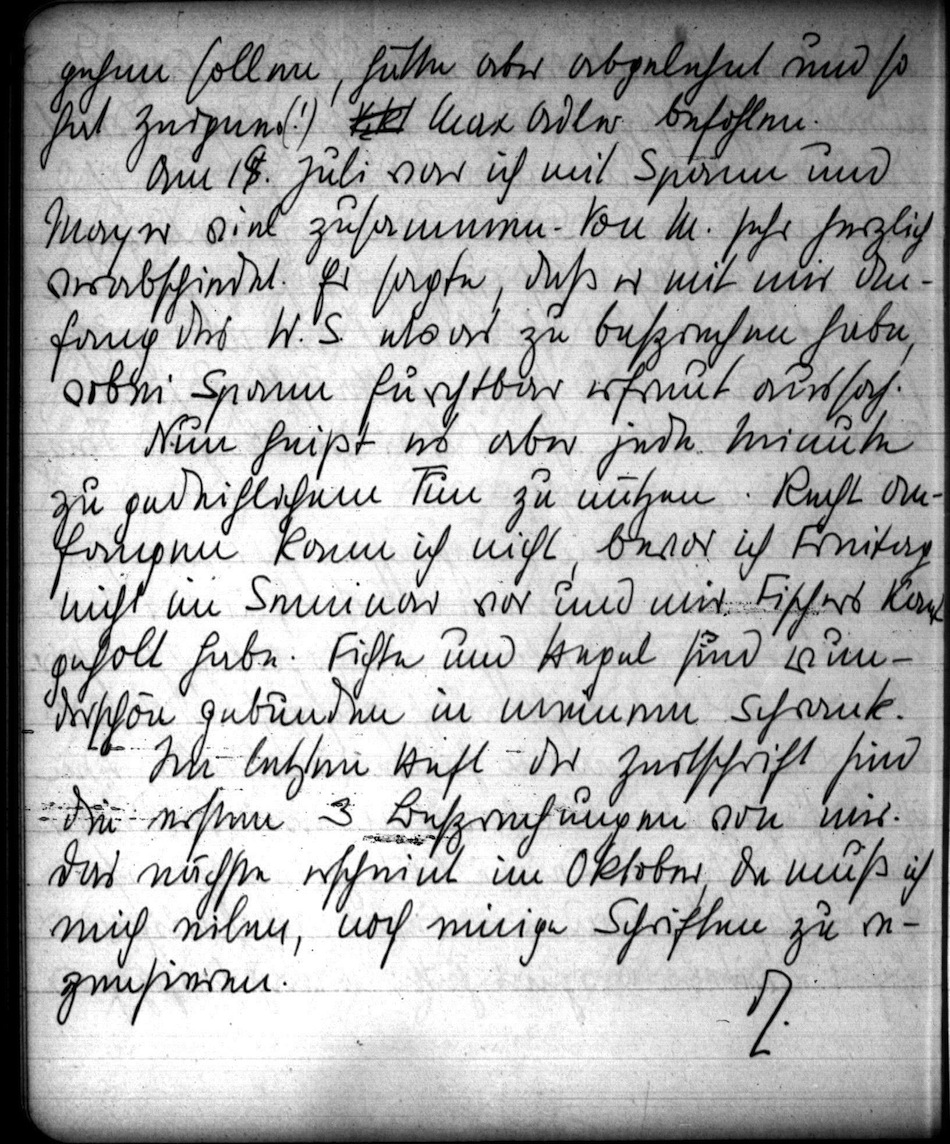 gehen sollen, hätte aber abgelehnt und so
hat        (!)     Max Adler befohlen.
Am 18. Juli war ich mit Spann und
Mayer viel zusammen. Von M. sehr herzlich
verabschiedet. Er sagte, daß er mit mir An-
fang des W. S. etwas zu besprechen habe,
wobei Spann furchtbar erfreut aussah.
Nun heißt es aber jede Minute
zu gedeihlichem Tun zu nützen. Recht an-
fangen kann ich nicht, bevor ich Freitag
nicht im Seminar war und mir Fischers Kant
geholt habe. Fichte und Hegel sind wun-
derschön gebunden in meinem Schrank.
Im letzten Heft der Zeitschrift sind
die ersten 3 Besprechungen von mir.
Das nächste erscheint im Oktober, da muß ich
mich eilen, noch einige Schriften zu re-
zensieren.